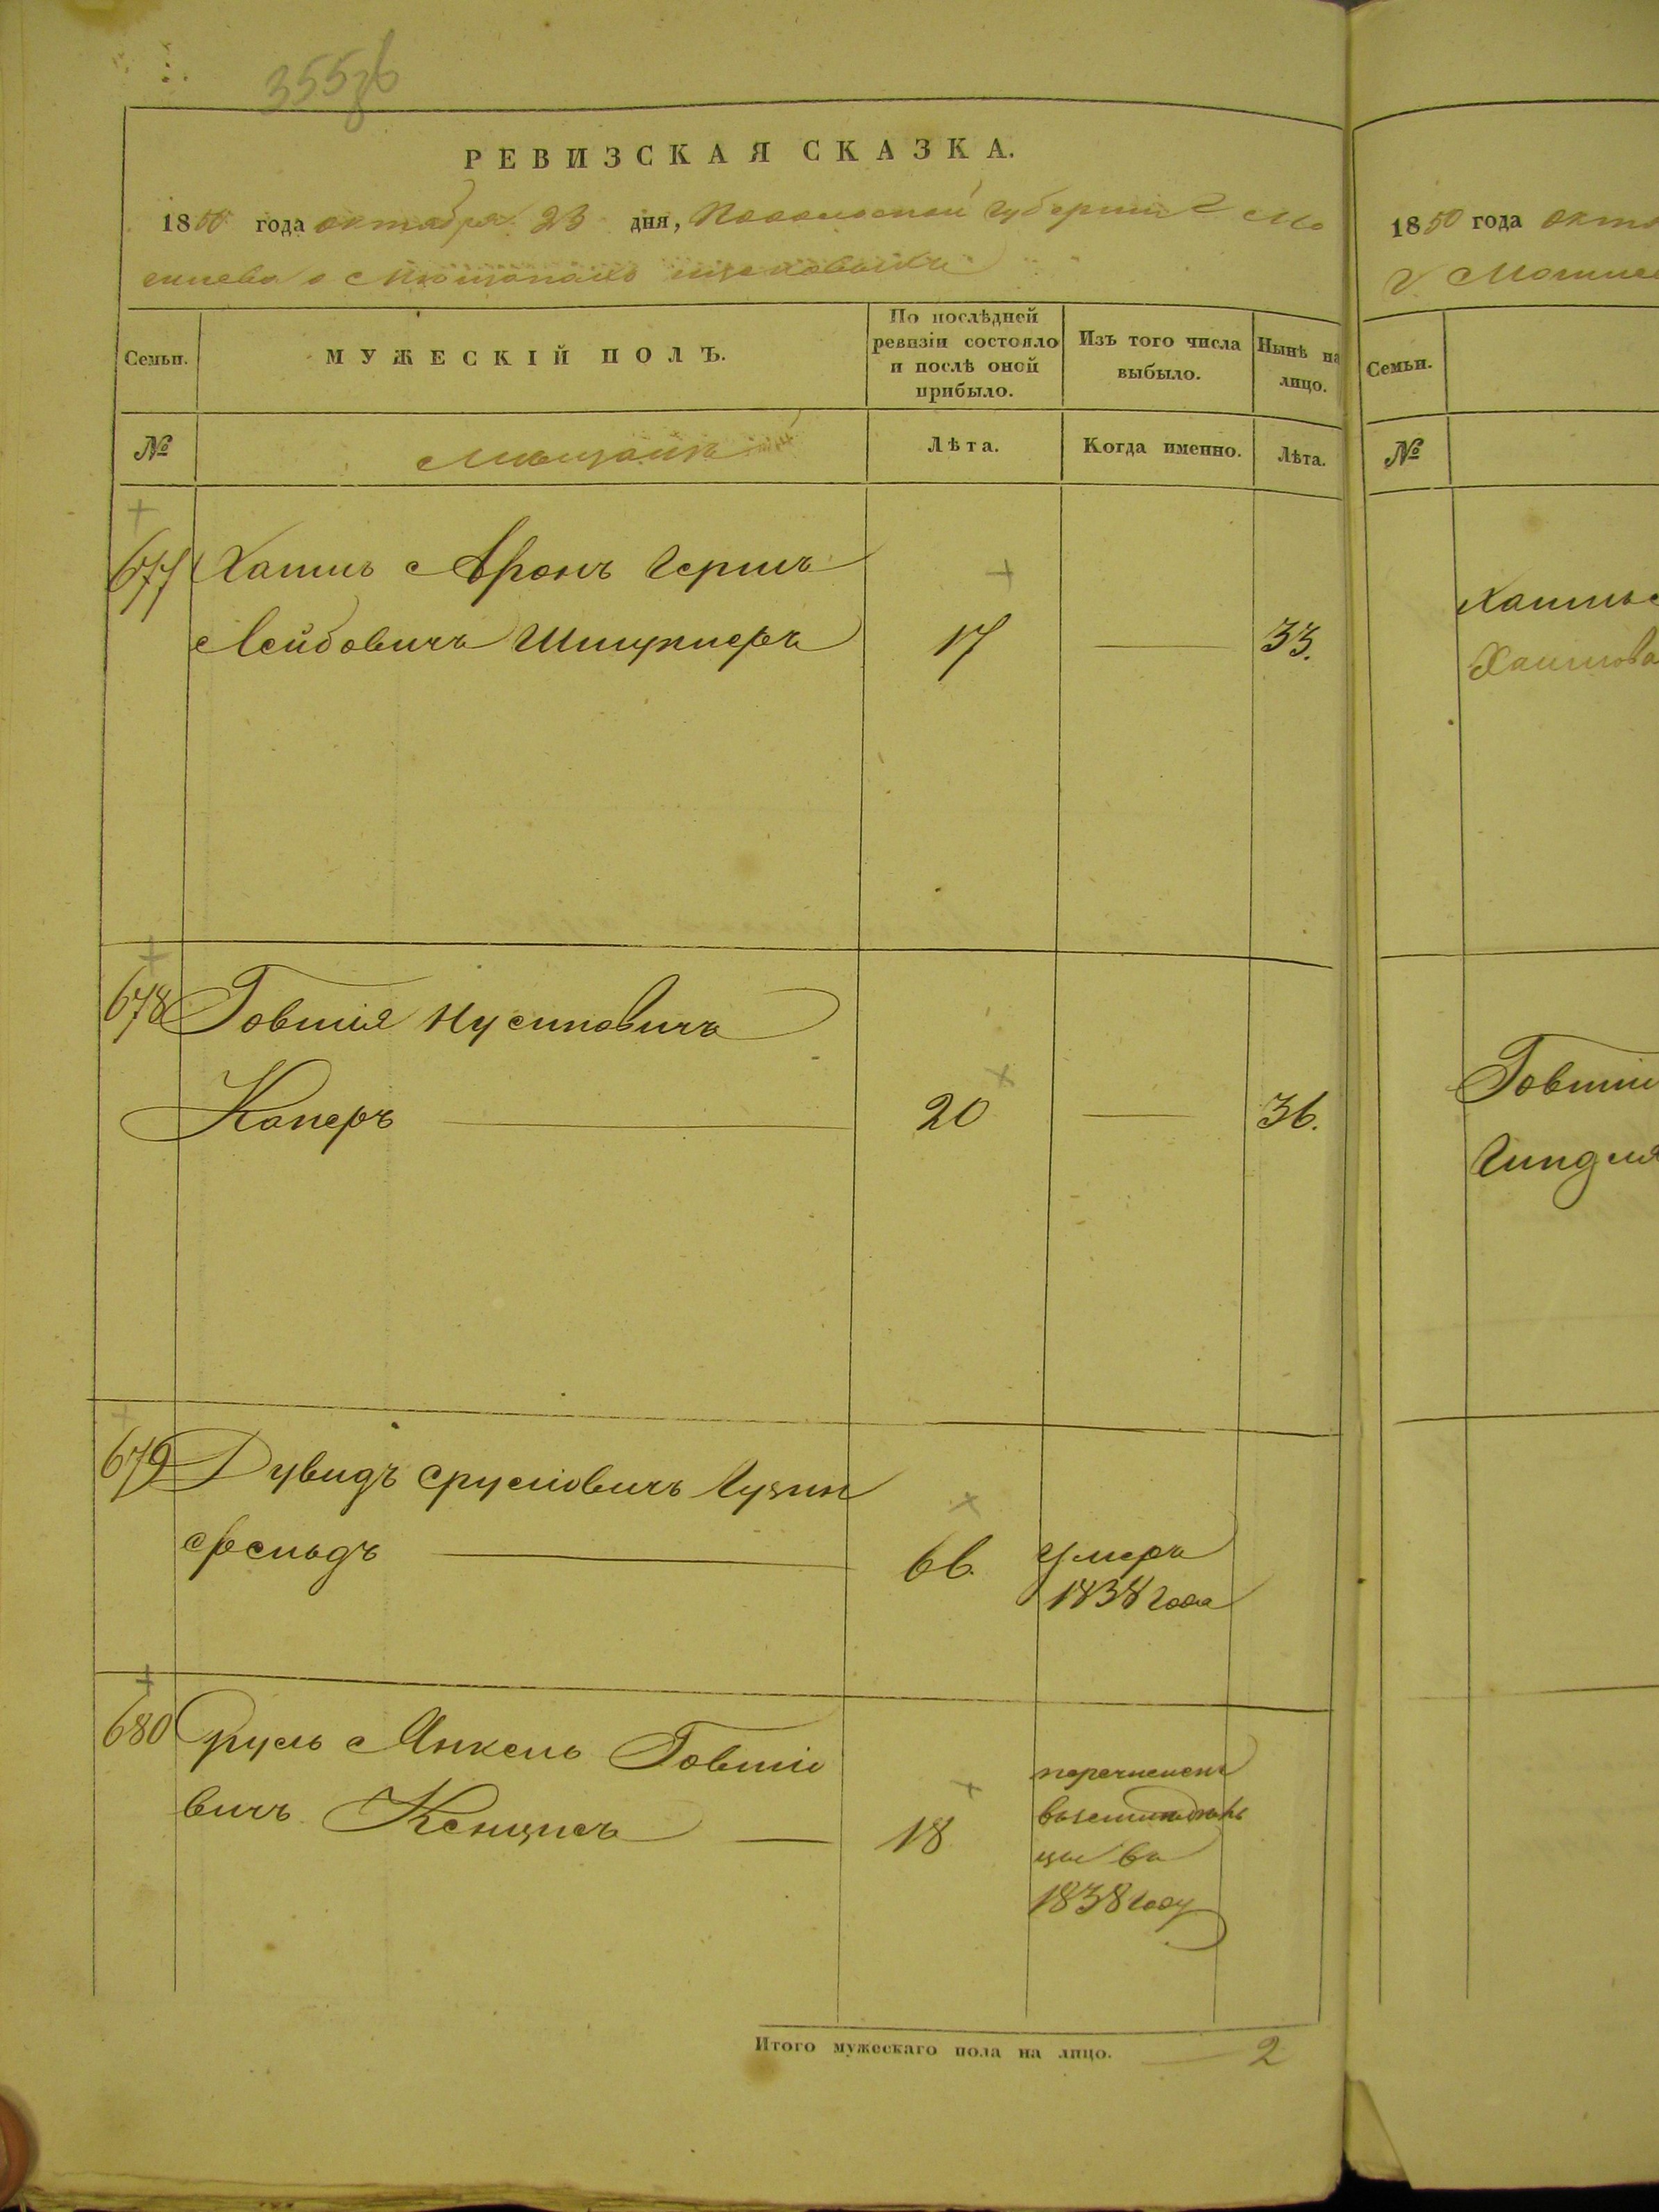 355об
РЕВИЗСКАЯ СКАЗКА.
1850 года октября 23 дня, Подольской губерніи г Мо
гилева о мещанахъ
Семьи.
МУЖЕСКІЙ ПОЛЪ.
По послѣдней ревизіи состояло и послѣ оной прибыло.
Изъ того числа выбыло.
Нынѣ на лицо.
№
Мещанинъ
Лѣта.
Когда именно.
Лѣта.
677 Хаимъ Аронъ Гершъ
Лейбовичъ 17 33.
678 Товшія Нусиновичъ
Каперъ 20 36.
679 Дувидъ Сруліовичъ Гузин
фельдъ 66. умеръ
1838 года
680 Сруль Янкель Товшіо
вичъ Кенцисъ 18 перечисленъ
цы въ
1838 году
Итого мужескаго пола на лицо. 2
1850 года окт
г. Могилев
Семьи.
№
Хаима
Хаимова
Товшіи
Гиндля